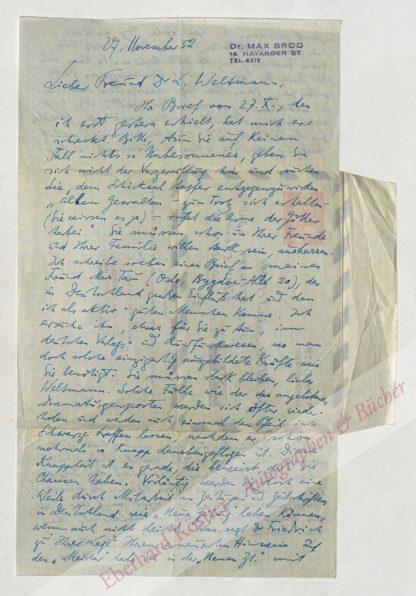 27. November 52
Dr. MAX BROD
16, HAYARDEN ST.
TEL-AVIV
Lieber Freund Dr L. Weltmann,
Ihr Brief vom 27. X., den
ich erst gestern erhielt, hat mich er-
schreckt. Bitte, tun Sie auf keinen
Fall nichts Unbesonnenes, geben Sie
sich nicht der Verzweiflung hin und
die, dem Schicksal entgegenzuwirken
"Allen Gewalten zum Trotz sich erhalten
(Sie wissen es ja) – rufet die Arme der Götter
herbei." Sie müssen schon um Ihrer Freunde
und Ihrer Familie willen stark sein, ausharren.
Ich schreibe soeben einen Brief an meinen
Freund Max Tau (Oslo, Bygdoe Allé 20), der
in Deutschland großen Einfluß hat und den
ich als aktiv-guten Menschen kenne. Ich
ersuche ihn, etwas für Sie zu tun im
deutschen Verlags- und Rundfunkwesen, wo man
doch solche einzigartig ausgebildete Kräfte wie
Sie benötigt. Sie müssen stark bleiben, lieber
Weltmann. Solche Fälle wie der des angebotenen
Dramaturgenpostens werden sich öfter wieder-
holen und werden einmal den Pfeil ins
Schwarze treffen lassen, nachdem er schon
mehrmals so knapp danebengeflogen ist. Diese
Knappheit ist es gerade, die beweist, daß Sie
Chancen haben. Vorläufig werden Sie noch eine
Weile durch Mitarbeit an Zeitungen und Zeitschriften
in Deutschland, wie "Neue Zeitung" leben können,
wenn auch nicht leicht. Was sagt Dr Friedrich
zu Ihrer Lage? Ihren erneuerten Hinweis auf
den "Meister" habe ich in der "Neuen Ztg." mit
Eberhard Köstler Autographen & Bücher